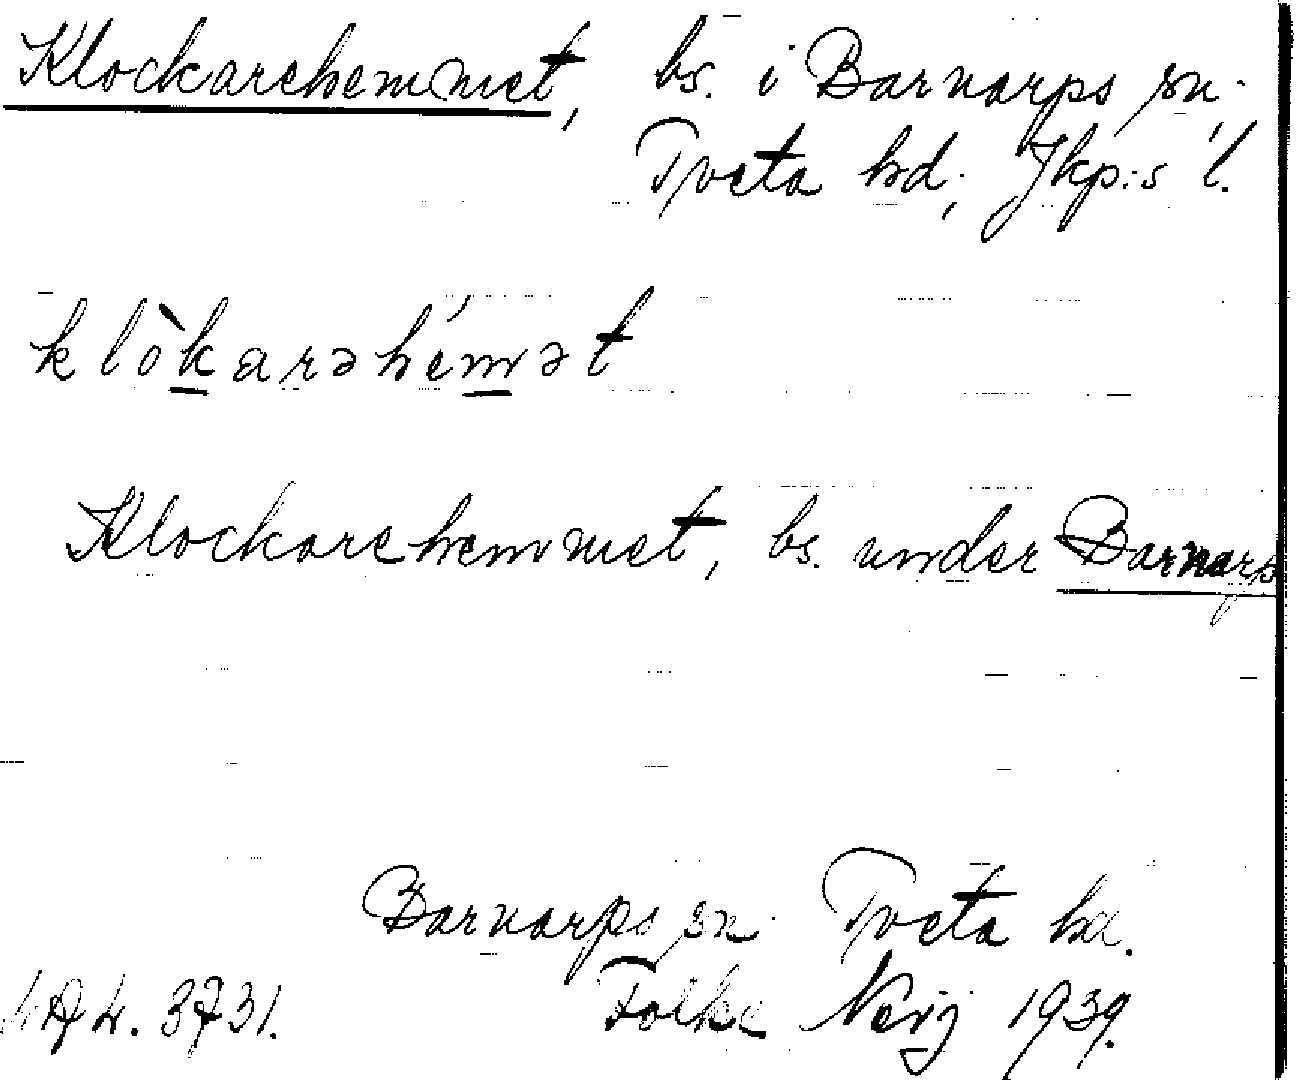 Klockarehemmet, bs. i Barnarps sn.
Tveta hd; Jkp:s l.
klòkarəhémət
Klockarehemmet, bs. under Barnarp
Barnarps sn. Tveta hd.
3731. Folke Neij 1939.